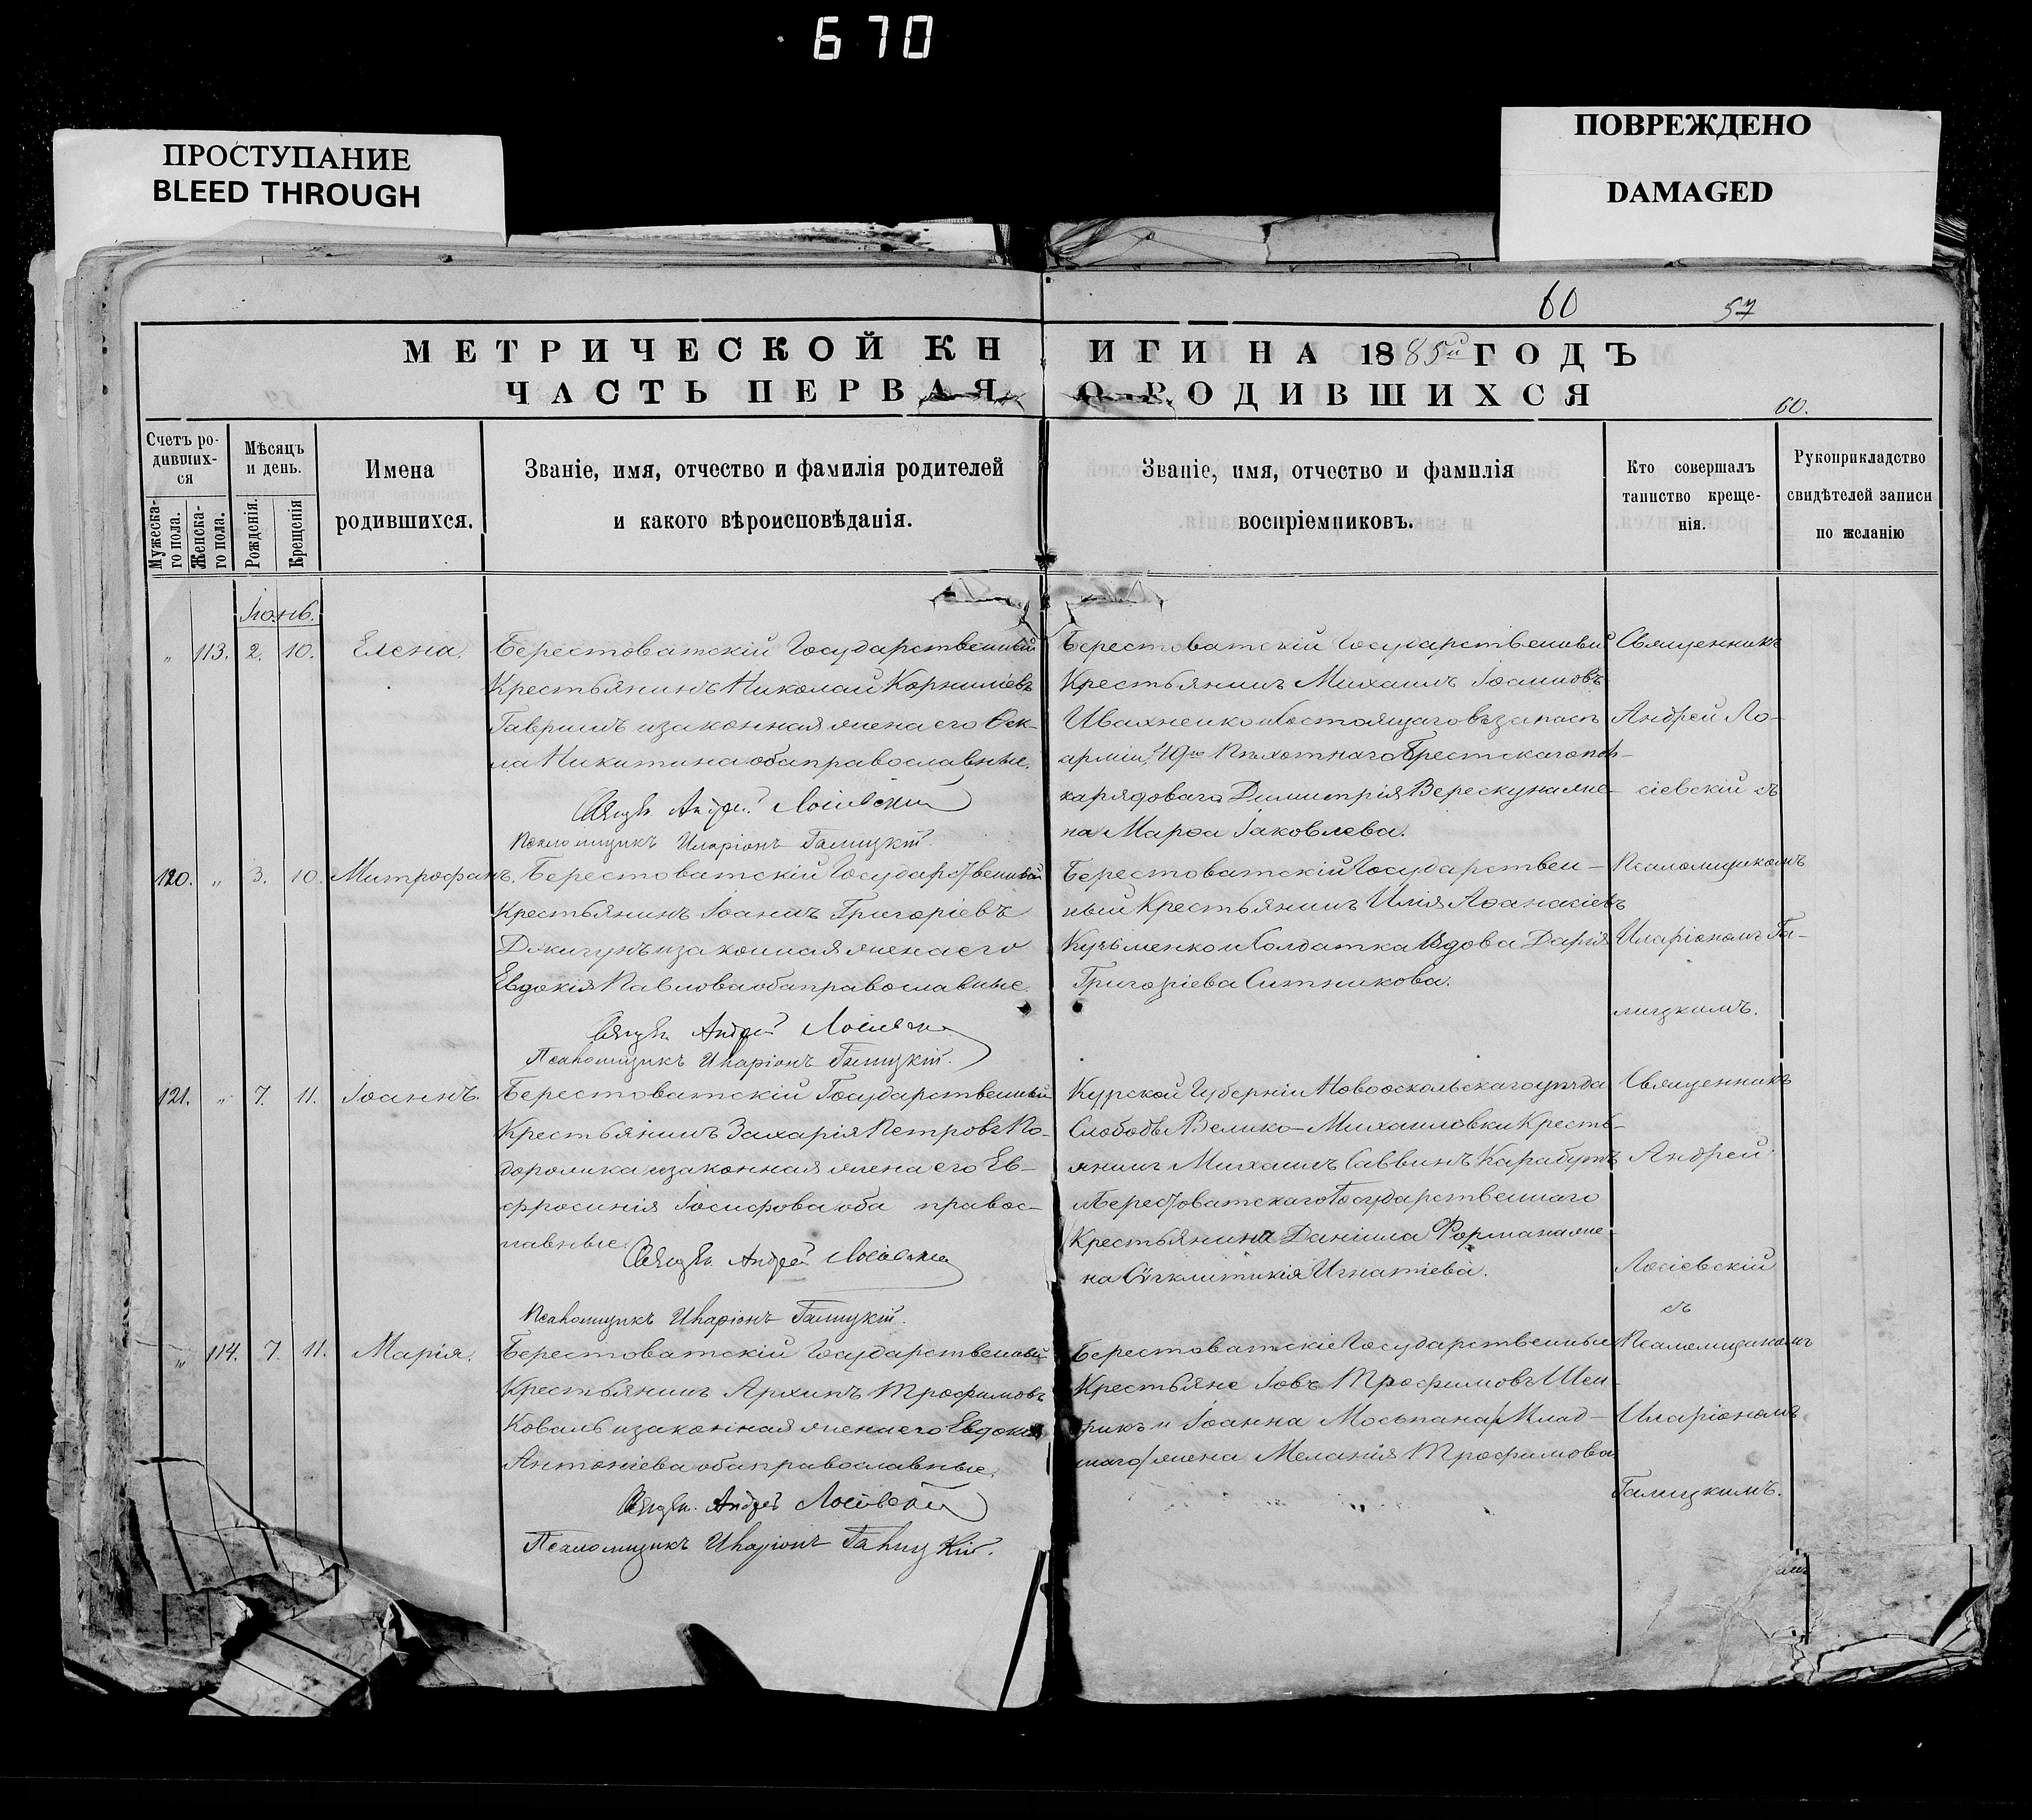 670
ПРОСТУПАНИЕ
BLEED THROUGH
ПОВРЕЖДЕНО
DAMAGED
60
57
МЕТРИЧЕСКОЙ КНИГИ НА 1885й ГОДЪ
ЧАСТЬ ПЕРВАЯ О РОДИВШИХСЯ
60.
Счетъ ро-
дивших-
ся
Мужеска-
го пола.
Женска-
го пола.
Мѣсяцъ
и день.
Рожденія.
Крещенія
Имена
родившихся.
Званіе, имя, отчество и фамилія родителей
и какого вѣроисповѣданія.
Званіе, имя, отчество и фамилія
воспріемниковъ.
Кто совершалъ
таинство креще-
нія.
Рукоприкладство
свидѣтелей записи
по желанію
Іюнь.
" 113. 2. 10. Елена.
Берестоватскій Государственный
Крестьянинъ Николай Корниліевъ
Гавришъ и законная жена его Ѳек-
ла Никитина оба православные.
Священ. Андрей Лосіевскій
Псаломщикъ Иларіонъ Галицкій.
Берестоватскій Государственный
Крестьянинъ Михаилъ Іоанновъ
Ивахненко и состоящаго въ запасѣ
арміи, 49го Пѣхотнаго Брестскаго пол-
ка рядоваго Димитрія Верескуна же-
на Марѳа Іаковлева.
Священникъ
Андрей Ло-
сіевскій съ
120. " 3. 10. Митрофанъ.
Берестоватскій Государственный
Крестьянинъ Іоаннъ Григоріевъ
Джигунъ и законная жена его
Евдокія Павлова оба православные.
Священ. Андрей Лосіевскій
Псаломщикъ Иларіонъ Галицкій.
Берестоватскій Государствен-
ный Крестьянинъ Илія Аѳанасіевъ
Кузьменко и Солдатка Вдова Дарія
Григоріева Ситникова.
Псаломщикомъ
Иларіономъ Га-
лицкимъ.
121. " 7. 11. Іоаннъ.
Берестоватскій Государственный
Крестьянинъ Захарія Петровъ По-
доролика и законная жена его Ев-
фросинія Іосифова оба правос-
лавные
Священ. Андрей Лосіевскій
Псаломщикъ Иларіонъ Галицкій.
Курской Губерніи Новооскольскаго уѣзда
Слободы Велико-Михаиловки Кресть-
янинъ Михаилъ Саввинъ Карабутъ
и Берестоватскаго Государственнаго
Крестьянина Даніила Формана же-
на Сѵгклитикія Игнатіева.
Священникъ
Андрей
Лосіевскій
съ
" 114. 7. 11. Марія.
Берестоватскій Государственный
Крестьянинъ Архипъ Трофимовъ
Коваль и законная жена его Евдокія
Антоніева оба православные.
Священ. Андрей Лосіевскій
Псаломщикъ Иларіонъ Галицкій.
Берестоватскіе Государственные
Крестьяне Іовъ Трофимовъ Шен-
рикъ и Іоанна Мосьпана /Млад-
шаго/ жена Меланія Трофимова
Псаломщикомъ
Иларіономъ
Галицкимъ.